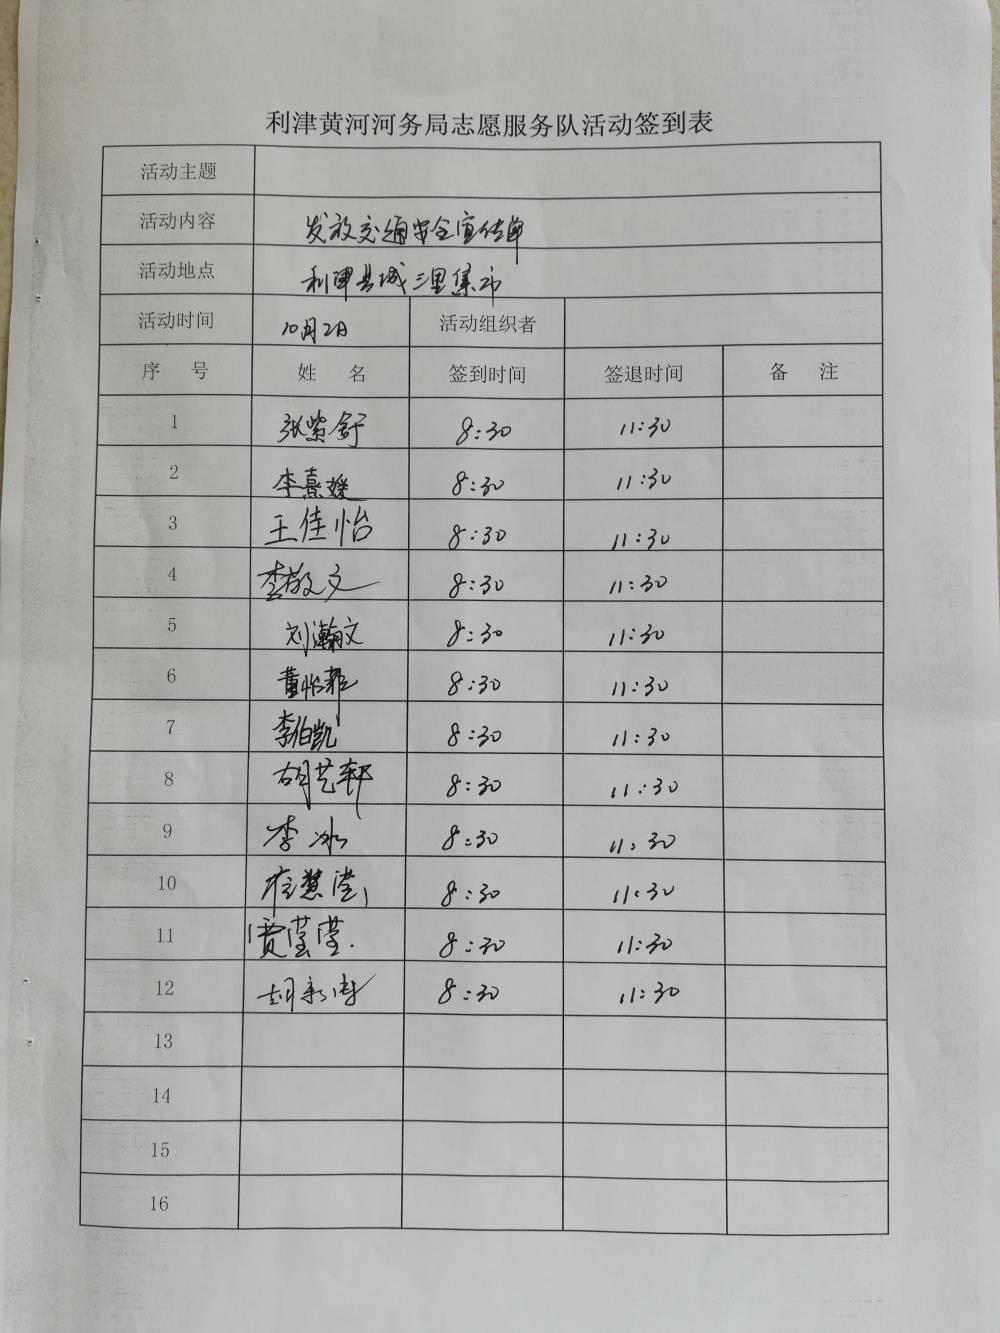 利津黄河河务局志愿服务队活动签到表
活动主题
活动内容 发放交通安全宣传单
活动地点 利津县城三里集市
活动时间 10月2日 活动组织者
序 号 姓 名 签到时间 签退时间 备 注
1 张紫舒 8:30 11:30
2 李熹媛 8:30 11:30
3 王佳怡 8:30 11:30
4 李敬文 8:30 11:30
5 刘瀚文 8:30 11:30
6 董怡菲 8:30 11:30
7 李伯凯 8:30 11:30
8 胡艺轩 8:30 11:30
9 李冰 8:30 11:30
10 8:30 11:30
11 贾莹莹. 8:30 11:30
12 胡新涛 8:30 11:30
13
14
15
16